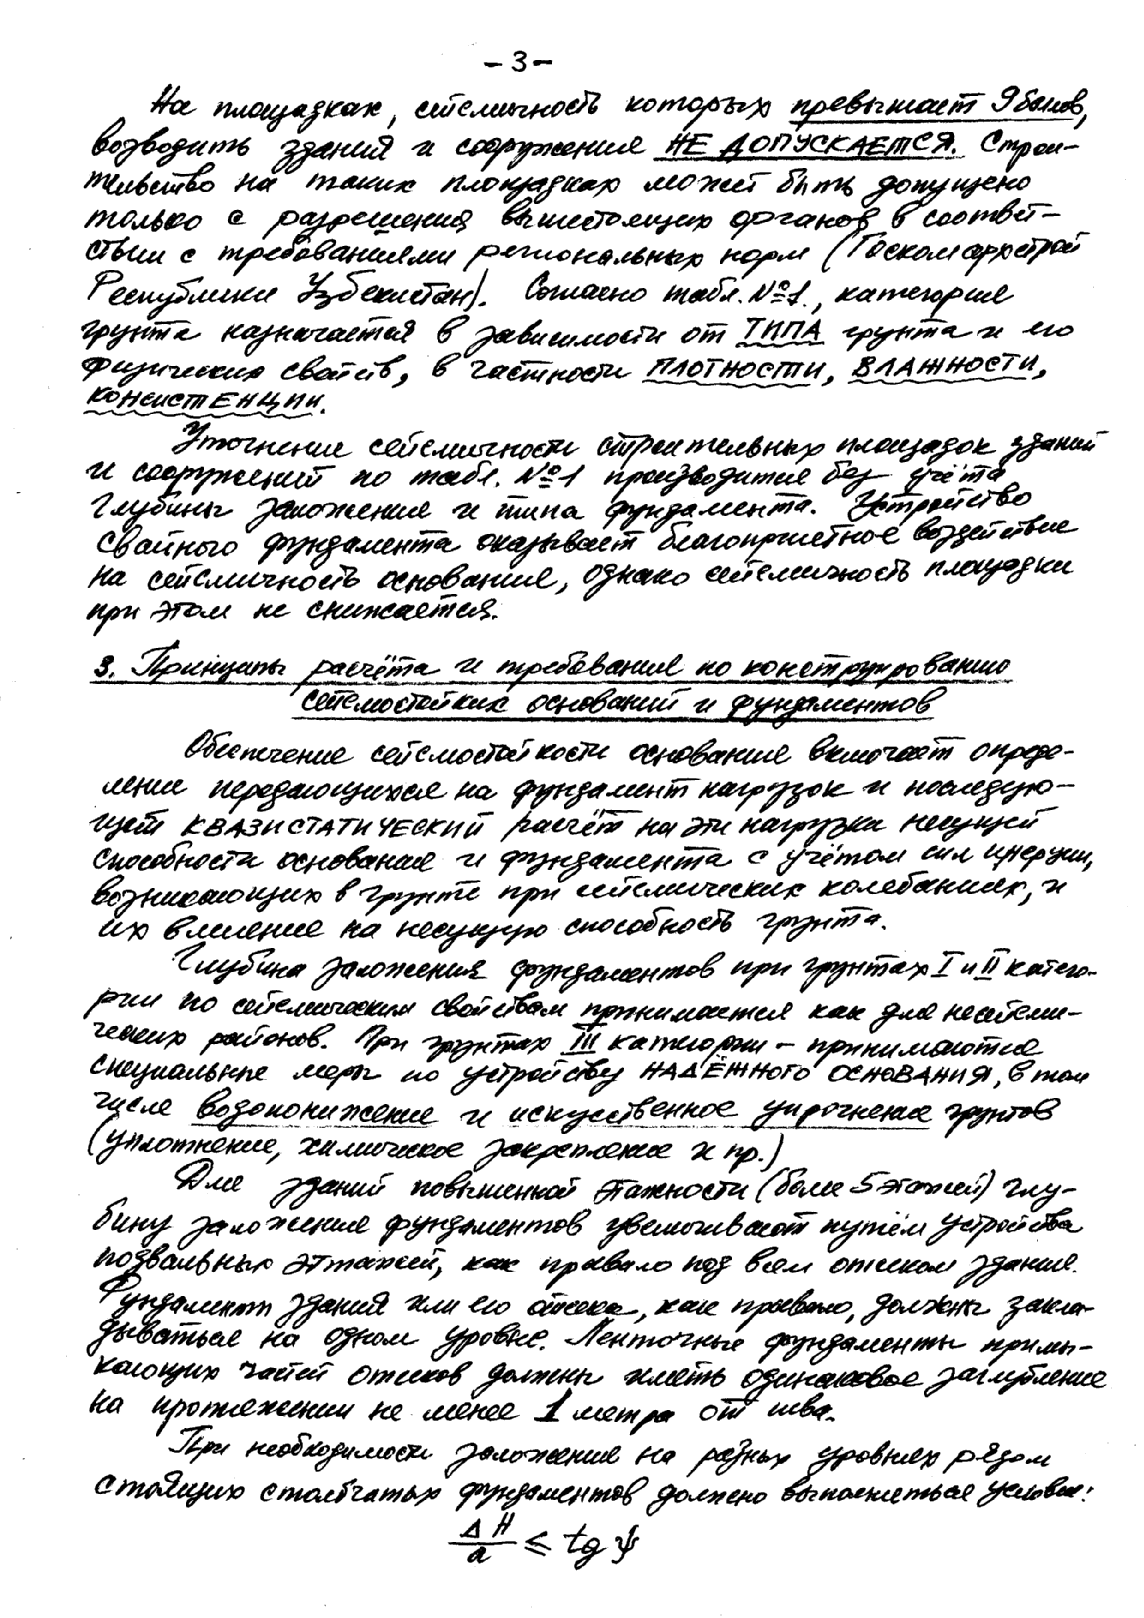 - 3 -
На площадках, сейсмичность которых превышает 9 баллов,
возводить здания и сооружения НЕ ДОПУСКАЕТСЯ. Строи-
тельство на таких площадках может быть допущено
только с разрешения вышестоящих органов в соответ-
ствии с требованиями региональных норм (Госкомархстрой
Республики Узбекистан). Согласно табл. №1, категория
грунта назначается в зависимости от ТИПА грунта и его
физических свойств, в частности ПЛОТНОСТИ, ВЛАЖНОСТИ,
КОНСИСТЕНЦИИ.
Уточнение сейсмичности строительных площадок зданий
и сооружений по табл. №1 производится без учёта
глубины заложения и типа фундамента. Устройство
свайного фундамента оказывает благоприятное воздействие
на сейсмичность основания, однако сейсмичность площадки
при этом не снижается.
3. Принципы расчёта и требования по конструированию
сейсмостойких оснований и фундаментов
Обеспечение сейсмостойкости основания включает опреде-
ление передающихся на фундамент нагрузок и последую-
щей КВАЗИСТАТИЧЕСКИЙ расчёт на эти нагрузки несущей
способности основания и фундамента с учётом сил инерции,
возникающих в грунте при сейсмических колебаниях, и
их влияние на несущую способность грунта.
Глубина заложения фундаментов при грунтах I и II катего-
рии по сейсмическим свойствам принимается как для несейсми-
ческих районов. При грунтах III категории - принимаются
специальные меры по устройству НАДЁЖНОГО ОСНОВАНИЯ, в том
числе водопонижение и искусственное упрочнение грунтов
(уплотнение, химическое закрепление и пр.)
Для зданий повышенной этажности (более 5 этажей) глу-
бину заложения фундаментов увеличивают путём устройства
подвальных этажей, как правило под всем отсеком здания.
Фундаменты здания или его отсека, как правило, должны закла-
дываться на одном уровне. Ленточные фундаменты примы-
кающих частей отсеков должны иметь одинаковое заглубление
на протяжении не менее 1 метра от шва.
При необходимости заложения на разных уровнях рядом
стоящих столбчатых фундаментов должно выполняться условие:
ΔH/a ≤ tg ψ